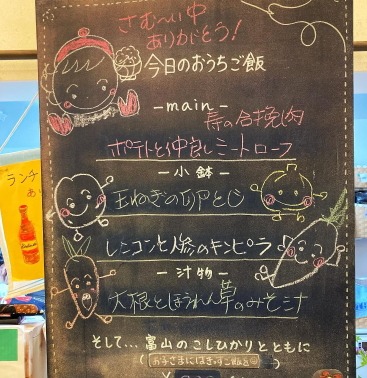 さむ〜い中
ありがとう!
今日のおうちご飯
ーmainー
寿の合挽肉
ポテトと仲良しミートローフ
ー小鉢ー
玉ねぎの卵とじ
レンコンと人参のキンピラ
ー汁物ー
大根とほうれん草のみそ汁
そして... 富山のこしひかりとともに
ランチ